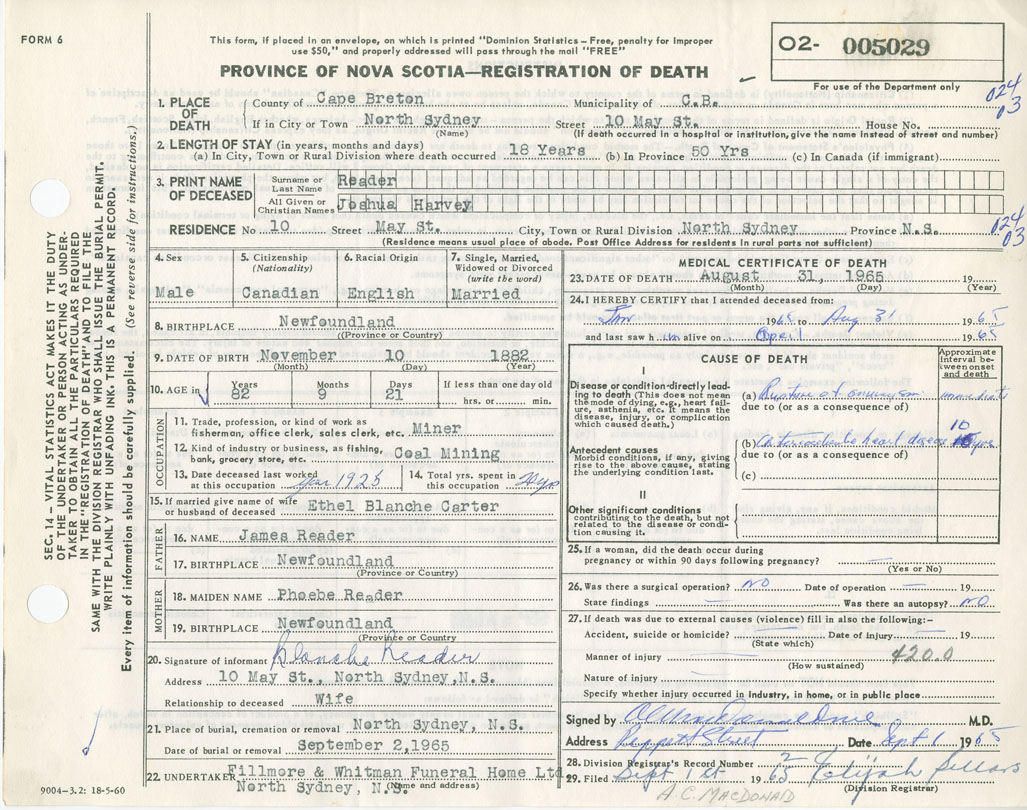 FORM 6
This form, if placed in an envelope, on which is printed "Dominion Statistics – Free, penalty for improper
use $50," and properly addressed will pass through the mail "FREE"
PROVINCE OF NOVA SCOTIA—REGISTRATION OF DEATH
O2- 005029
For use of the Department only
024
03
1. PLACE OF DEATH
County of Cape Breton Municipality of C.B.
If in City or Town North Sydney Street 10 May St. House No.
(Name) (If death occurred in a hospital or institution, give the name instead of street and number)
2. LENGTH OF STAY (in years, months and days)
(a) In City, Town or Rural Division where death occurred 18 Years (b) In Province 50 Yrs (c) In Canada (if immigrant)
3. PRINT NAME OF DECEASED
Surname or Last Name Reader
All Given or Christian Names Joshua Harvey
024
03
RESIDENCE No 10 Street May St. City, Town or Rural Division North Sydney Province N.S.
(Residence means usual place of abode. Post Office Address for residents in rural parts not sufficient)
4. Sex
Male
5. Citizenship
(Nationality)
Canadian
6. Racial Origin
English
7. Single, Married,
Widowed or Divorced
(write the word)
Married
8. BIRTHPLACE Newfoundland
(Province or Country)
9. DATE OF BIRTH November 10 1882
(Month) (Day) (Year)
10. AGE in
Years Months Days If less than one day old
82 9 21 hrs. or min.
OCCUPATION
11. Trade, profession, or kind of work as
fisherman, office clerk, sales clerk, etc. Miner
12. Kind of industry or business, as fishing,
bank, grocery store, etc. Coal Mining
13. Date deceased last worked
at this occupation 1925
14. Total yrs. spent in
this occupation
15. If married give name of wife
or husband of deceased Ethel Blanche Carter
FATHER
16. NAME James Reader
17. BIRTHPLACE Newfoundland
(Province or Country)
MOTHER
18. MAIDEN NAME Phoebe Reader
19. BIRTHPLACE Newfoundland
(Province or Country
20. Signature of informant Blanche Reader
Address 10 May St., North Sydney, N.S.
Relationship to deceased Wife
21. Place of burial, cremation or removal North Sydney, N.S.
Date of burial or removal September 2, 1965
22. UNDERTAKER Fillmore & Whitman Funeral Home Ltd
North Sydney, N.S. (Name and address)
9004-3.2: 18-5-60
MEDICAL CERTIFICATE OF DEATH
23. DATE OF DEATH August 31, 1965 19
(Month) (Day) (Year)
24. I HEREBY CERTIFY that I attended deceased from:
Jan 1965 to Aug 31 1965
and last saw h im alive on April 65
CAUSE OF DEATH
Approximate
interval be-
tween onset
and death
I
Disease or condition directly lead-
ing to death (This does not mean
the mode of dying, eg., heart fail-
ure, asthenia, etc. It means the
disease, injury, or complication
which caused death.)
(a) Rupture of aneurysm immediate
due to (or as a consequence of)
Antecedent causes
Morbid conditions, if any, giving
rise to the above cause, stating
the underlying condition last.
(b) heart disease 10
due to (or as a consequence of)
(c)
II
Other significant conditions
contributing to the death, but not
related to the disease or condition
causing it.
25. If a woman, did the death occur during
pregnancy or within 90 days following pregnancy?
(Yes or No)
26. Was there a surgical operation? NO Date of operation 19
State findings Was there an autopsy? NO
27. If death was due to external causes (violence) fill in also the following:–
Accident, suicide or homicide? Date of injury 19
(State which)
Manner of injury 420.0
(How sustained)
Nature of injury
Specify whether injury occurred in industry, in home, or in public place
Signed by M.D.
Address Street Date Sept 1 1965
28. Division Registrar's Record Number
29. Filed Sept 1st 1965 Elijah Sellars
(Division Registrar)
A.C. MACDONALD
SEC. 14 – VITAL STATISTICS ACT MAKES IT THE DUTY
OF THE UNDERTAKER OR PERSON ACTING AS UNDER-
TAKER TO OBTAIN ALL THE PARTICULARS REQUIRED
IN THE "REGISTRATION OF DEATH" AND TO FILE THE
SAME WITH THE DIVISION REGISTRAR WHO SHALL ISSUE THE BURIAL PERMIT.
WRITE PLAINLY WITH UNFADING INK. THIS IS A PERMANENT RECORD.
Every item of information should be carefully supplied. (See reverse side for instructions.)